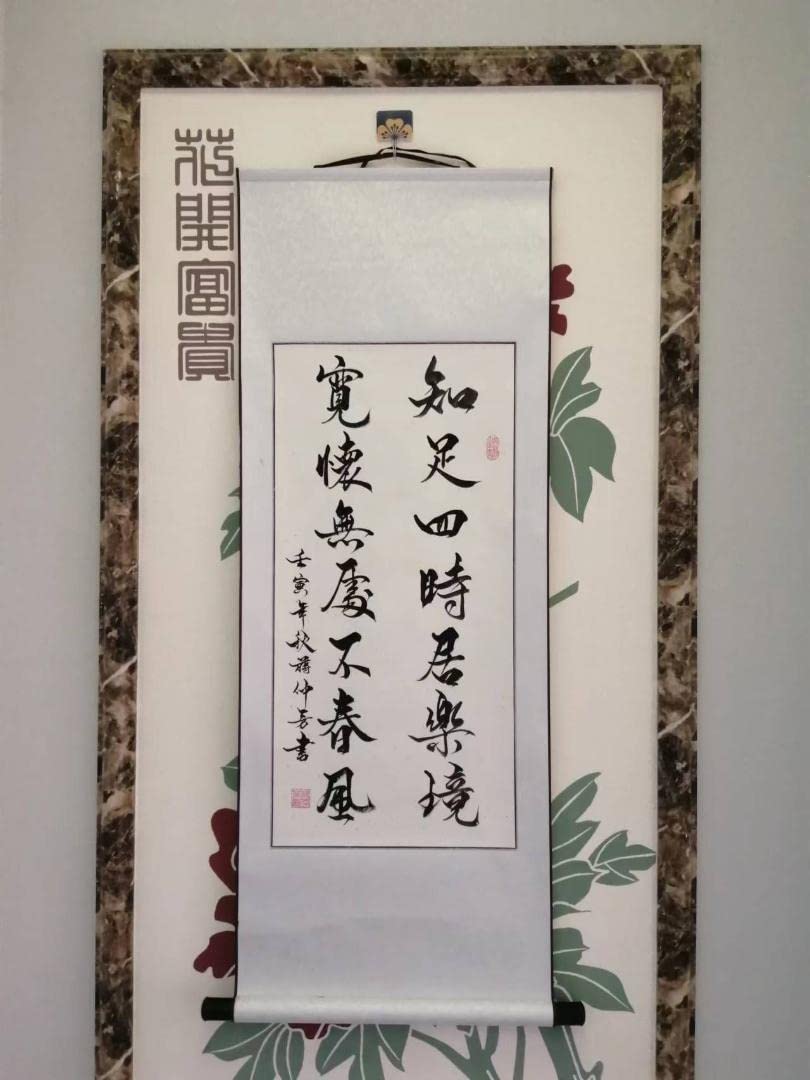 花開富貴
知足四時居樂境
寬懷無處不春風
壬寅年秋蔣仲芳書